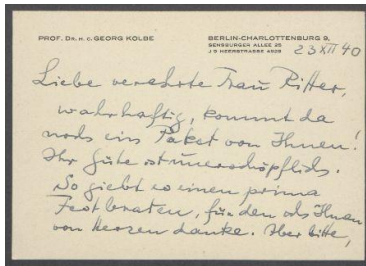 PROF. DR. H. C. GEORG KOLBE
BERLIN-CHARLOTTENBURG 9,
SENSBURGER ALLEE 25
J 9 HEERSTRASSE 4503
23 XII 40
Liebe verehrte Frau Ritter,
wahrhaftig, kommt da
noch ein Paket von Ihnen!
Ihr Güte ist unerschöpflich.
So giebt es einen prima
Festbraten, für den ich Ihnen
von Herzen danke. Aber bitte,